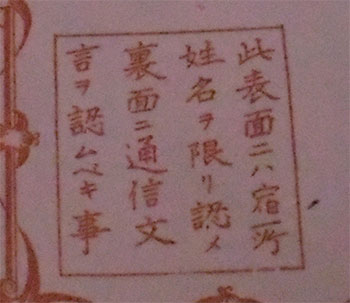 此表面ニハ宿所
姓名ヲ限リ認メ
裏面ニ通信文
言ヲ認ムベキ事